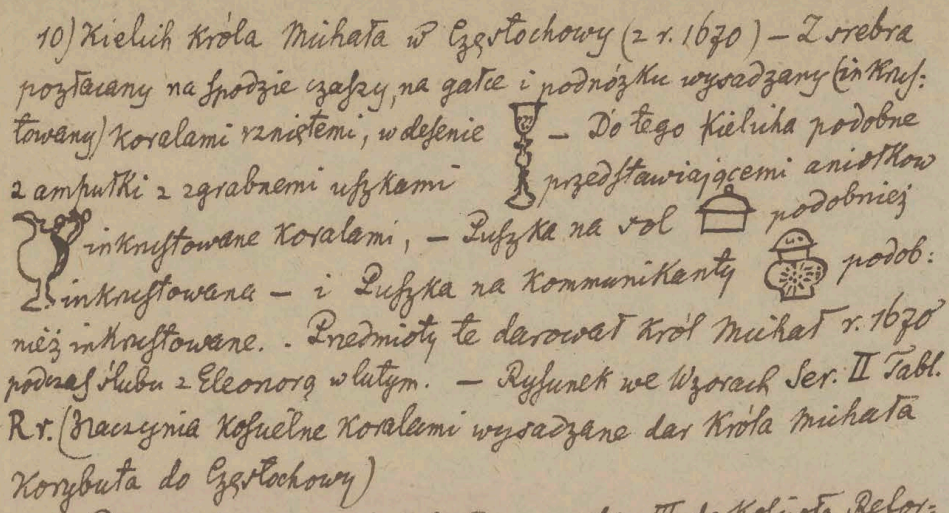 10) Kielich Króla Michała w Częstochowy (z r. 1670) — Z srebra
pozłacany na spodzie czaszy, na gałce i podnóżku wysadzany (inkrus-
towany) koralami rzniętemi, w desenie — Do tego kielicha podobne
2 ampułki z zgrabnemi uszkami przedstawiającemi aniołkow
inkrustowane koralami, — Puszka na sol podobnież
inkrustowana — i Puszka na kommunikanty podob:
nież inkrustowane. - Przedmioty te darował Król Michał r. 1670
podczas ślubu z Eleonorą w lutym. — Rysunek we Wzorach Ser. II Tabl.
R r. (Naczynia Kościelne koralami wysadzane dar Króla Michała
Korybuta do Częstochowy)